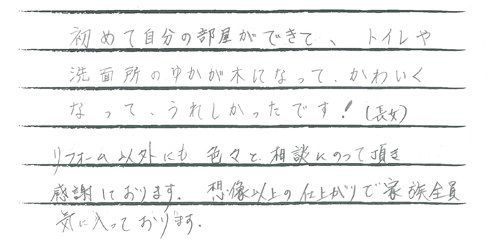 初めて自分の部屋ができて、トイレや
洗面所のゆかが木になって、かわいく
なって、うれしかったです！(長女)
リフォーム以外にも色々と相談にのって頂き
感謝しております。想像以上の仕上がりで家族全員
気に入っております。